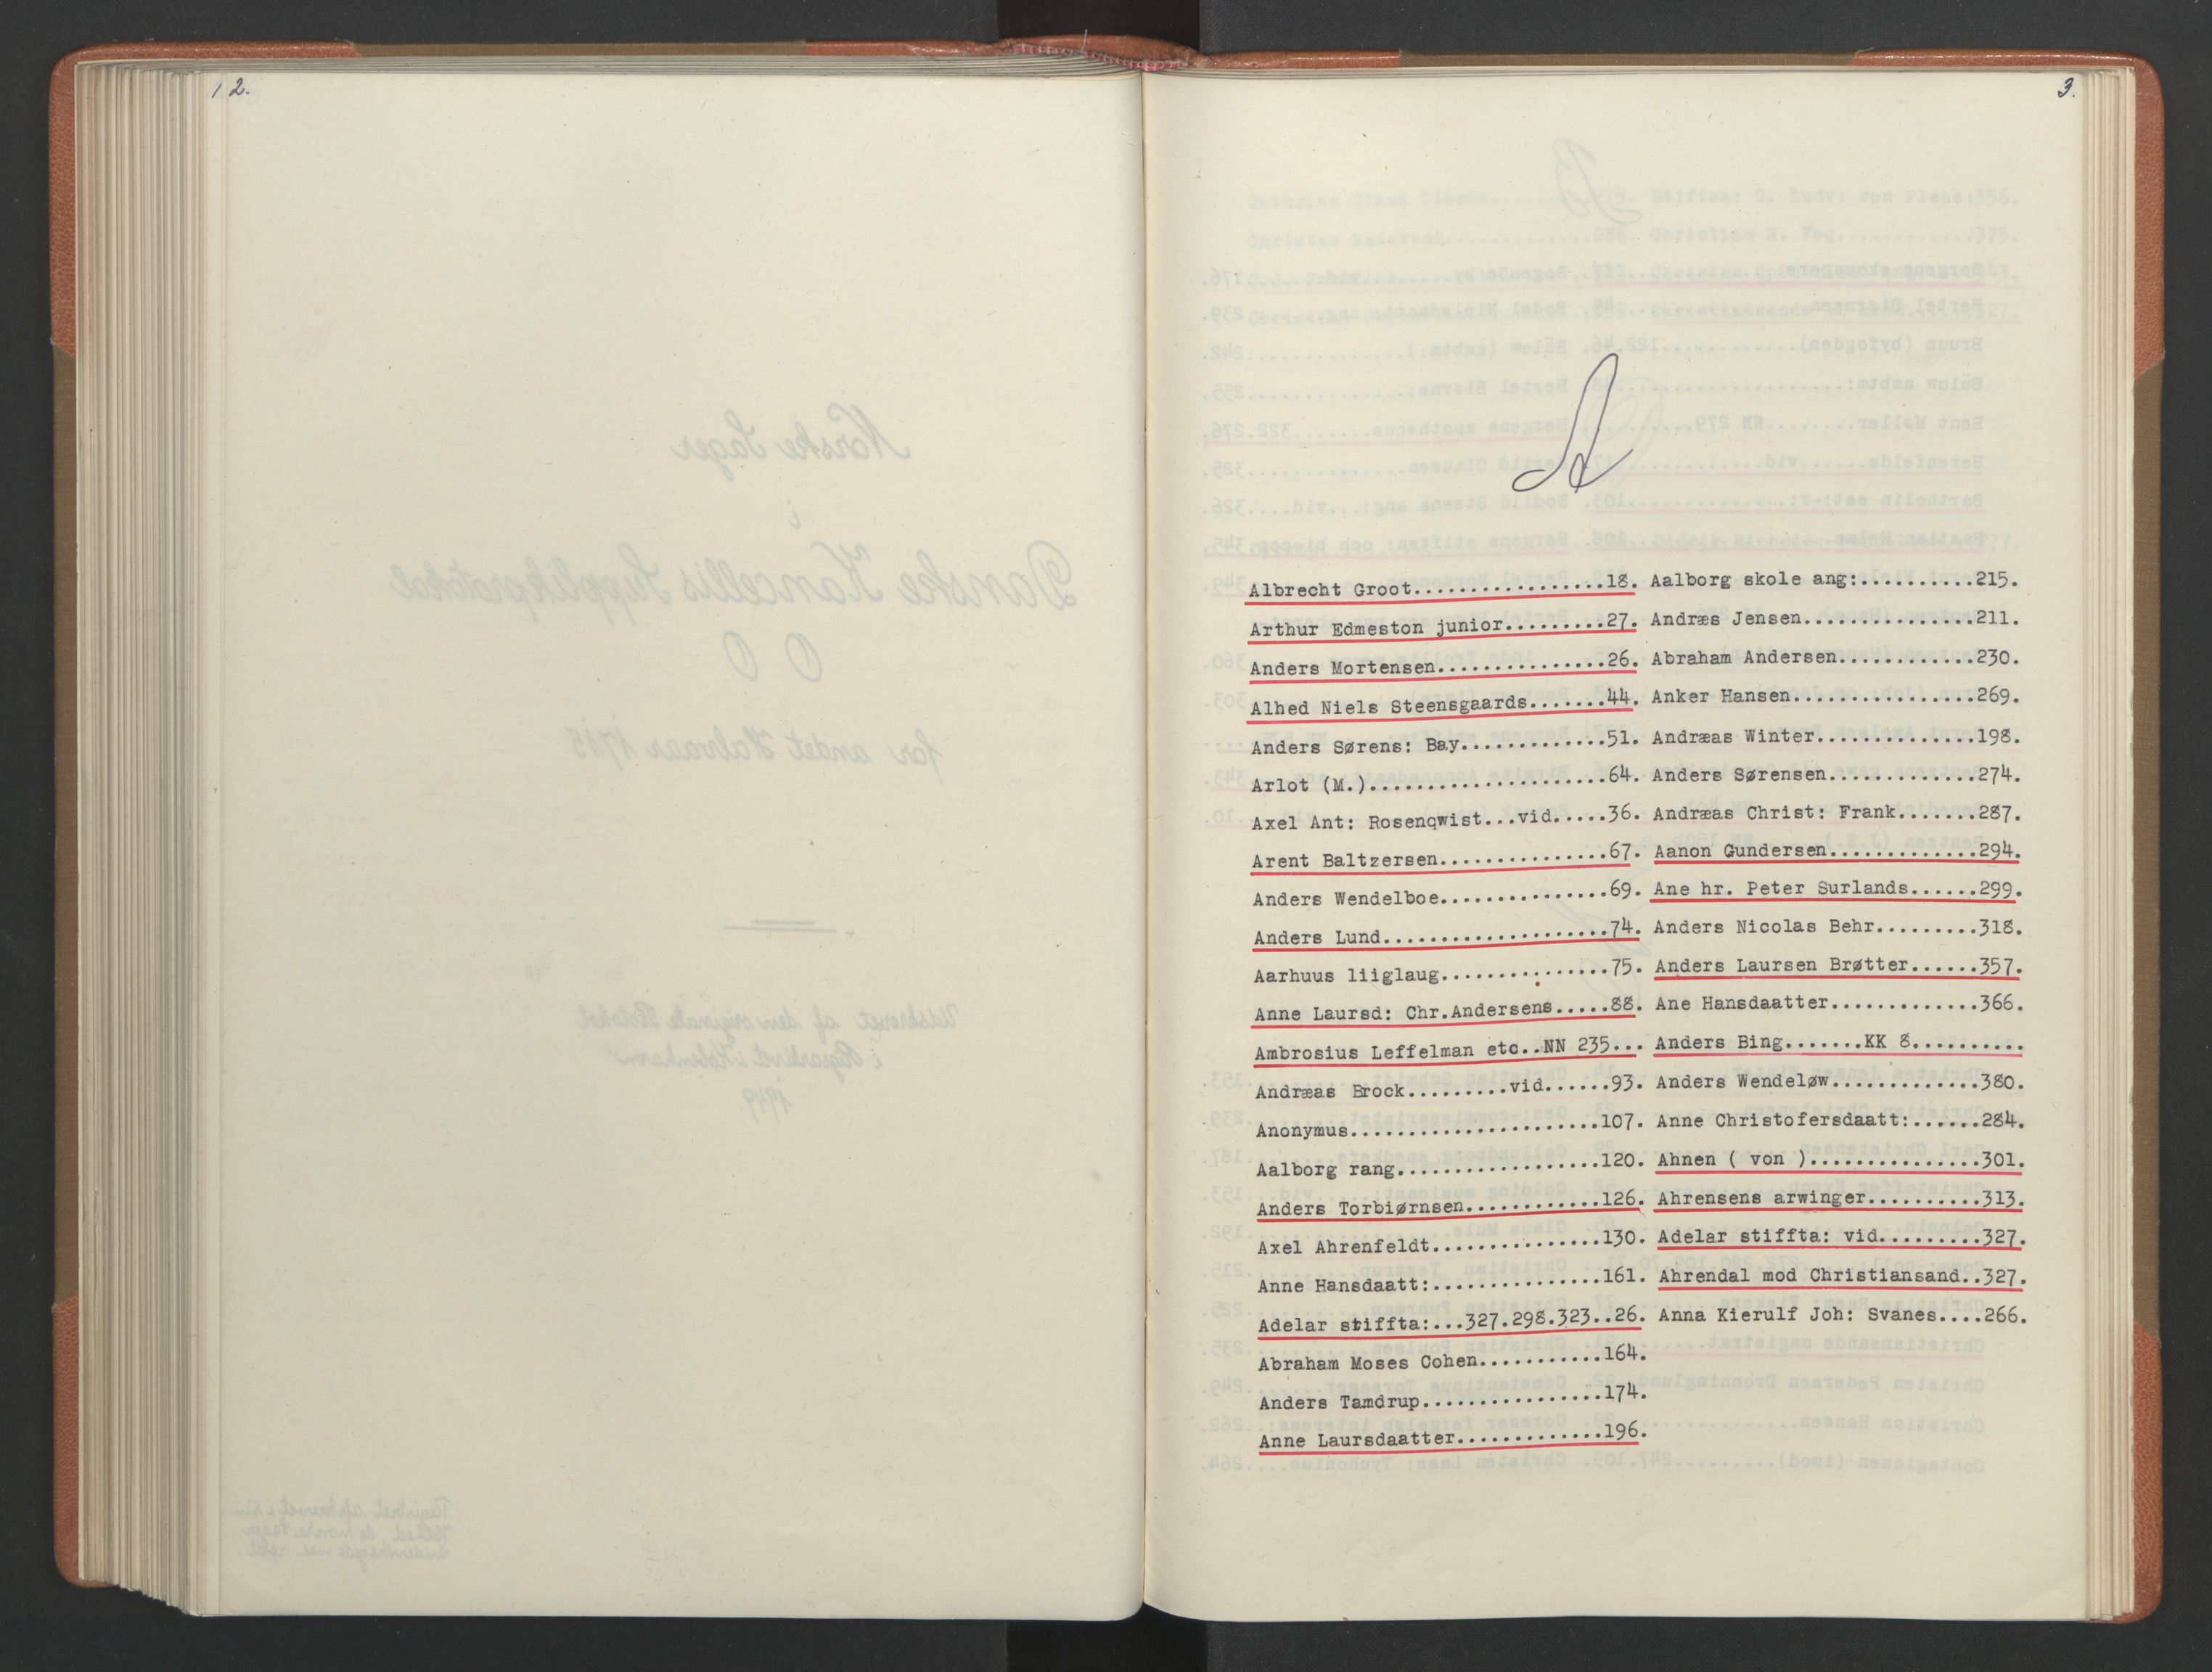 12.
3.
A
Albrecht Groot.................18.
Arthur Edmeston junior.........27.
Anders Mortensen...............26.
Alhed Niels Steensgaards.......44.
Anders Sørens: Bay.............51.
Arlot (M.).....................64.
Axel Ant: Rosenqwist...vid.....36.
Arent Baltzersen...............67.
Anders Wendelboe...............69.
Anders Lund....................74.
Aarhuus liiglaug...............75.
Anne Laursd: Chr.Andersens.....88.
Ambrosius Leffelman etc..NN 235...
Andræas Brock.........vid......93.
Anonymus......................107.
Aalborg rang..................120.
Anders Torbiørnsen............126.
Axel Ahrenfeldt...............130.
Anne Hansdaatt:...............161.
Adelar stiffta:...327.298.323..26.
Abraham Moses Cohen...........164.
Anders Tamdrup................174.
Anne Laursdaatter.............196.
Aalborg skole ang:..........215.
Andræs Jensen...............211.
Abraham Andersen............230.
Anker Hansen................269.
Andræas Winter..............198.
Anders Sørensen.............274.
Andræas Christ: Frank.......287.
Aanon Gundersen.............294.
Ane hr. Peter Surlands......299.
Anders Nicolas Behr.........318.
Anders Laursen Brøtter......357.
Ane Hansdaatter.............366.
Anders Bing.......KK 8..........
Anders Wendeløw.............380.
Anne Christofersdaatt:......284.
Ahnen ( von )...............301.
Ahrensens arwinger..........313.
Adelar stiffta: vid.........327.
Ahrendal mod Christiansand..327.
Anna Kierulf Joh: Svanes....266.